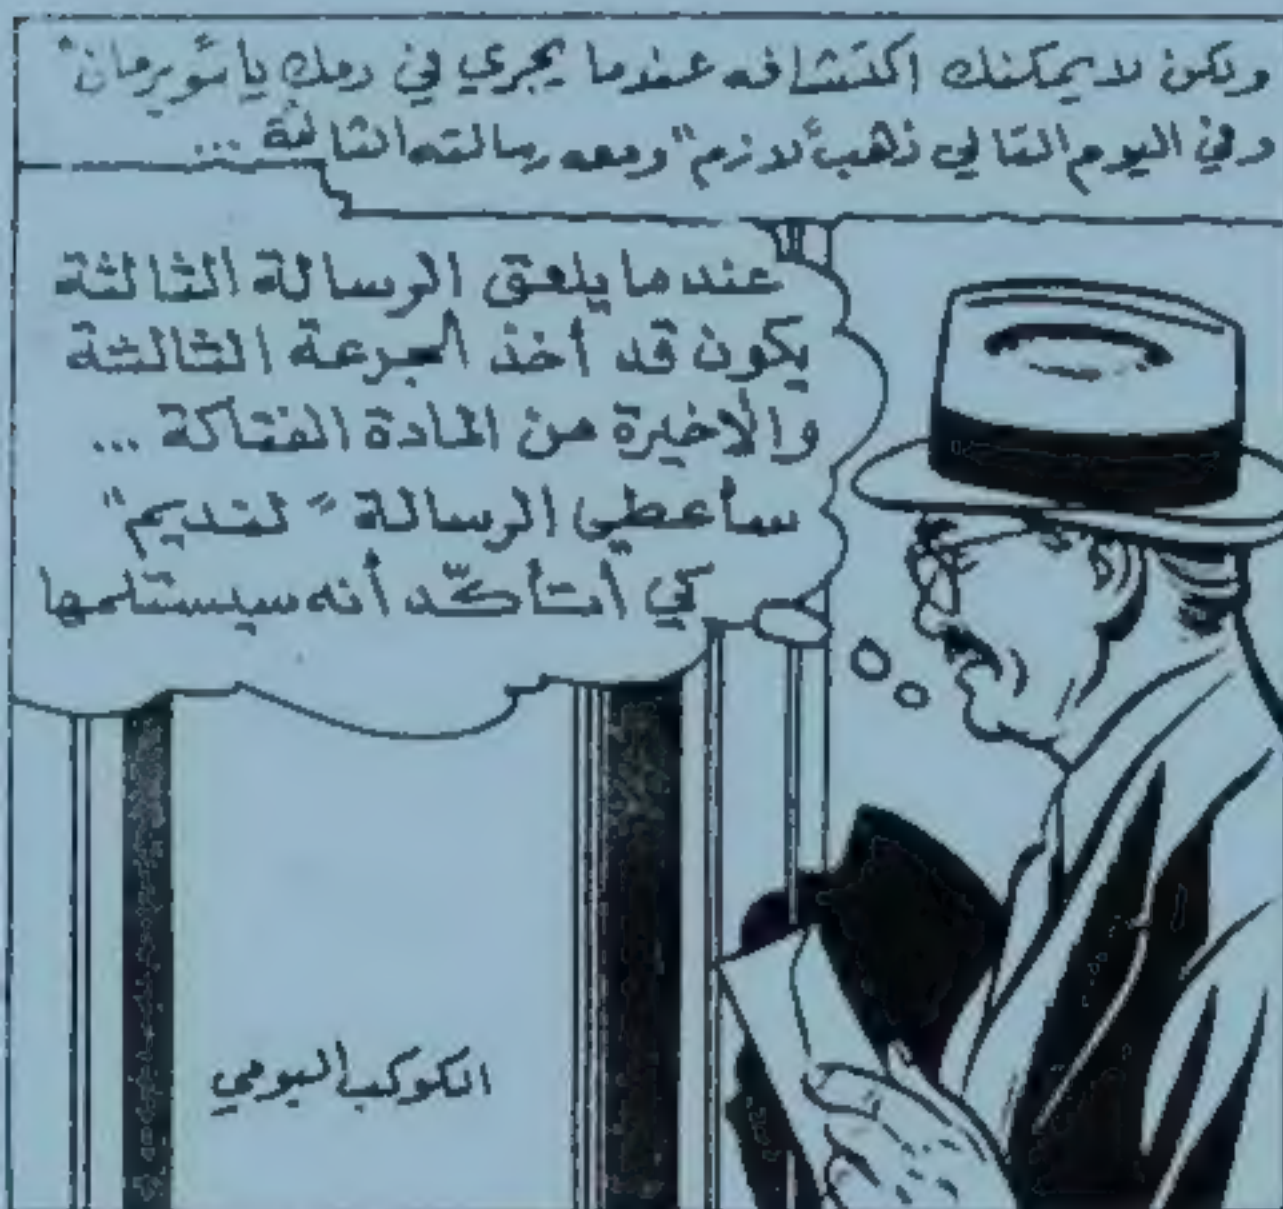 ولكن لا يمكنك اكتشافه عندما يجري في دمك يا "سوبرمان"
وفي اليوم التالي ذهب "لازم" ومعه رسالته الثالثة ...
عندما يلعق الرسالة الثالثة
يكون قد أخذ الجرعة الثالثة
والاخيرة من المادة الفتاكة ...
سأعطي الرسالة "لنديم"
كي أتأكّد أنه سيستلمها
الكوكب اليومي